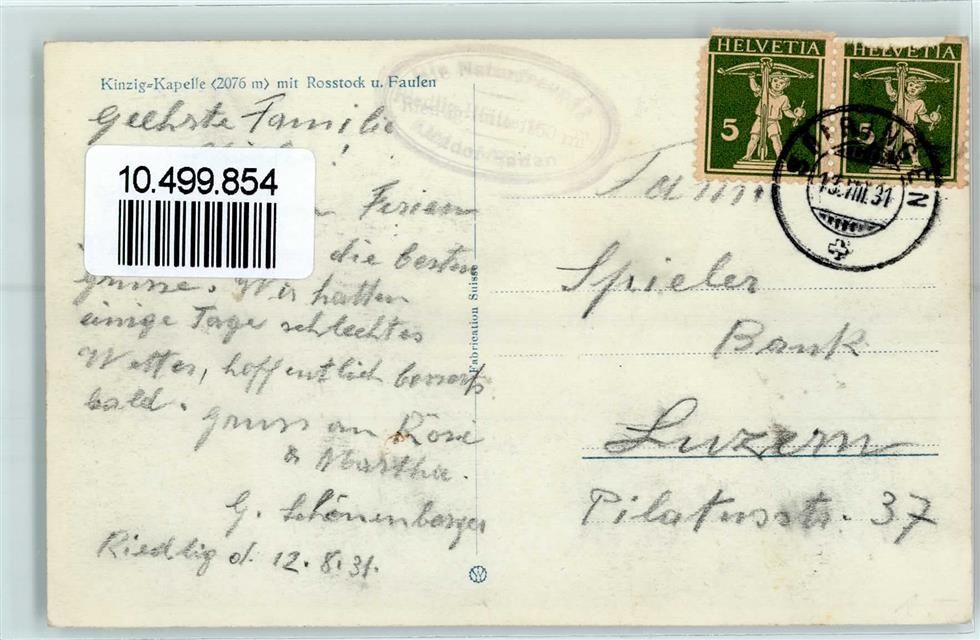 Kinzig-Kapelle (2076 m) mit Rosstock u. Faulen
Geehrte Familie
10.499.854
Ferien
die besten
Grüsse. Wir hatten
einige Tage schlechtes
Wetter, hoffentlich bessert's
bald.
Gruss an Rösi
& Martha.
G. Schönenberger
Riedlig d. 12.8.31.
Fabrication Suisse
Die Naturfreunde
HELVETIA
5
HELVETIA
5
13.VIII.31
Fam.
Spieler
Bank
Luzern
Pilatusstr. 37